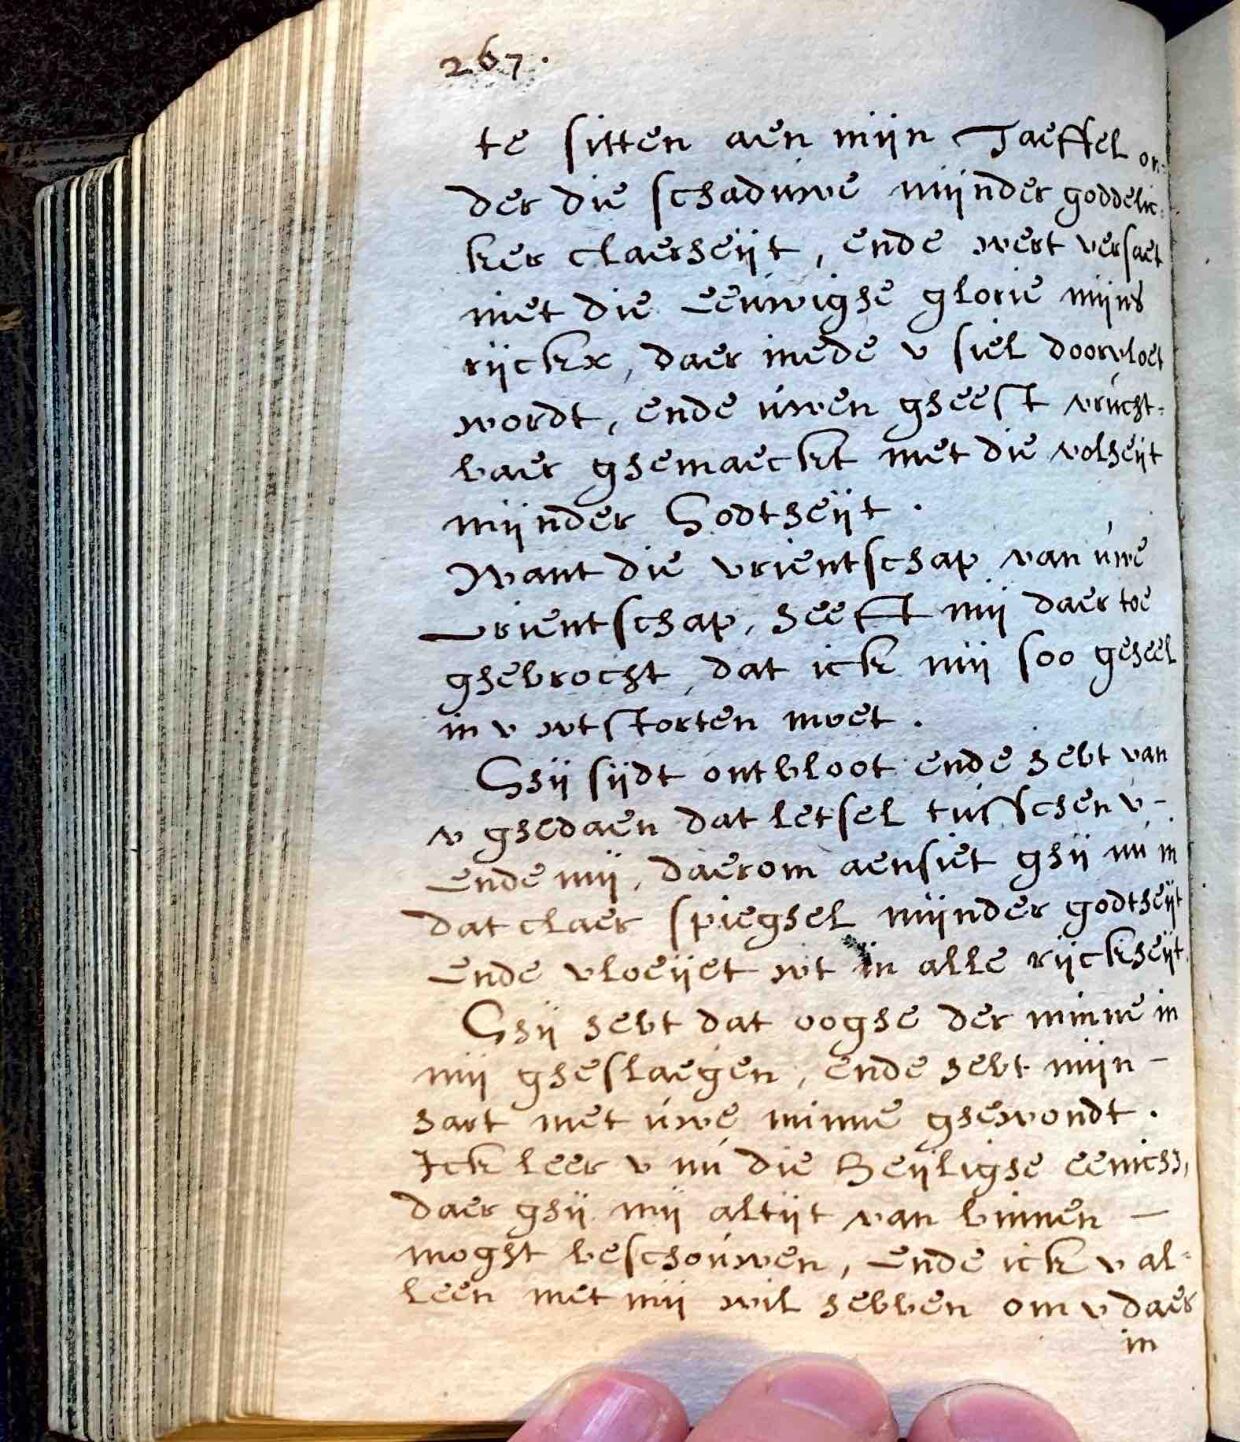 267.
te sitten aen mijn Taeffel on:
der die schaduwe mijnder goddelic:
ker claerheijt, ende wert versaet
met die Eeuwighe glorie mijns
rijckx, daer mede v siel doorvloet
wordt, ende úwen gheest vrúcht:
baer ghemaeckt met die volheijt
mijnder Godtheijt.
Want die vrientschap van úwe
vrientschap, heefft mij daer toe
ghebrocht, dat ick mij soo geheel
in v wtstorten moet.
Ghij sijdt ontbloot ende hebt van
v ghedaen dat letsel tússchen v -
Ende mij, daerom aensiet ghij nú in
dat claer spieghel mijnder godtheijt
Ende vloeijet wt in alle rijckheijt.
Ghij hebt dat ooghe der minne in
mij gheslaegen, ende hebt mijn -
hart met úwe minne ghewondt.
Ick leer v nú die Heijlighe eenich:,
daer ghij mij altijt van binnen -
moght beschoúwen, Ende ick v al-
leen met mij wil hebben om v daer
in